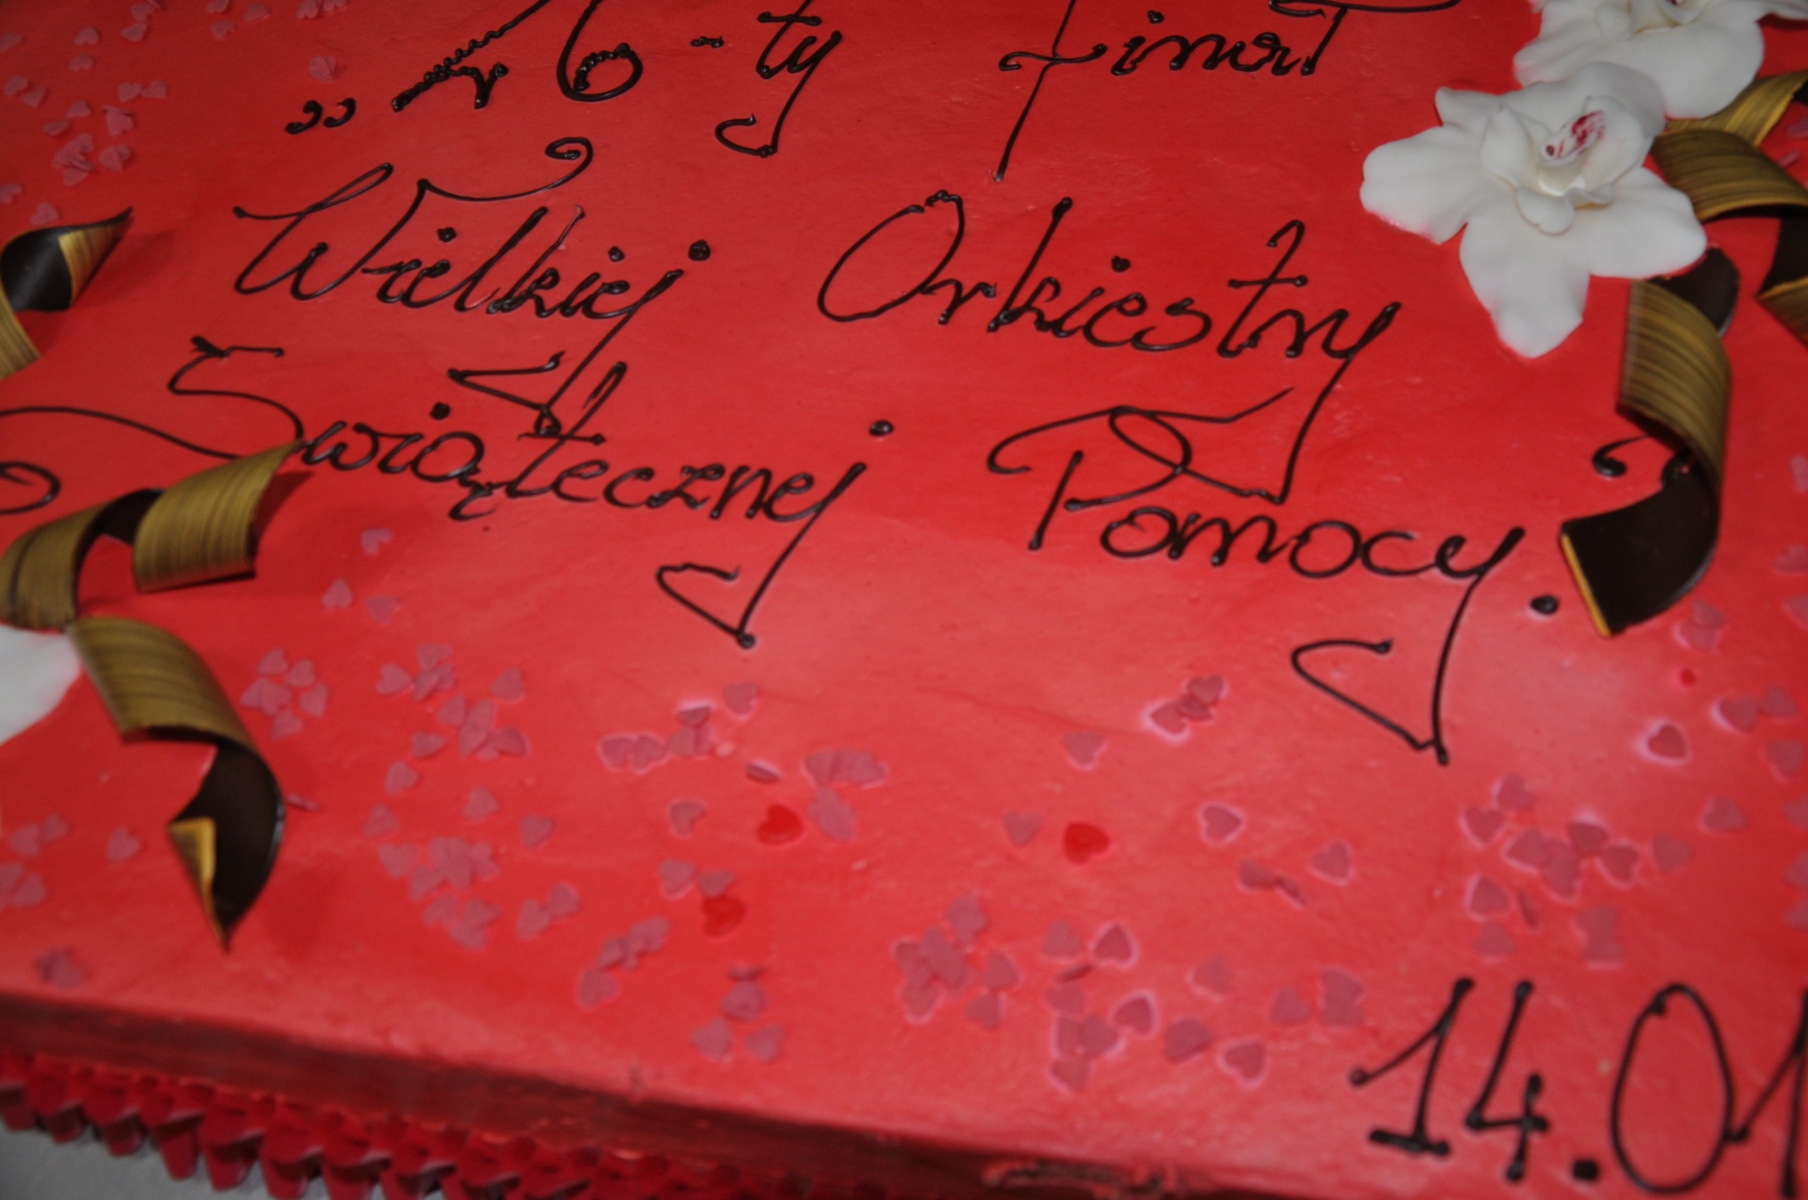 „26-ty finał
Wielkiej Orkiestry
Świątecznej Pomocy."
14.01